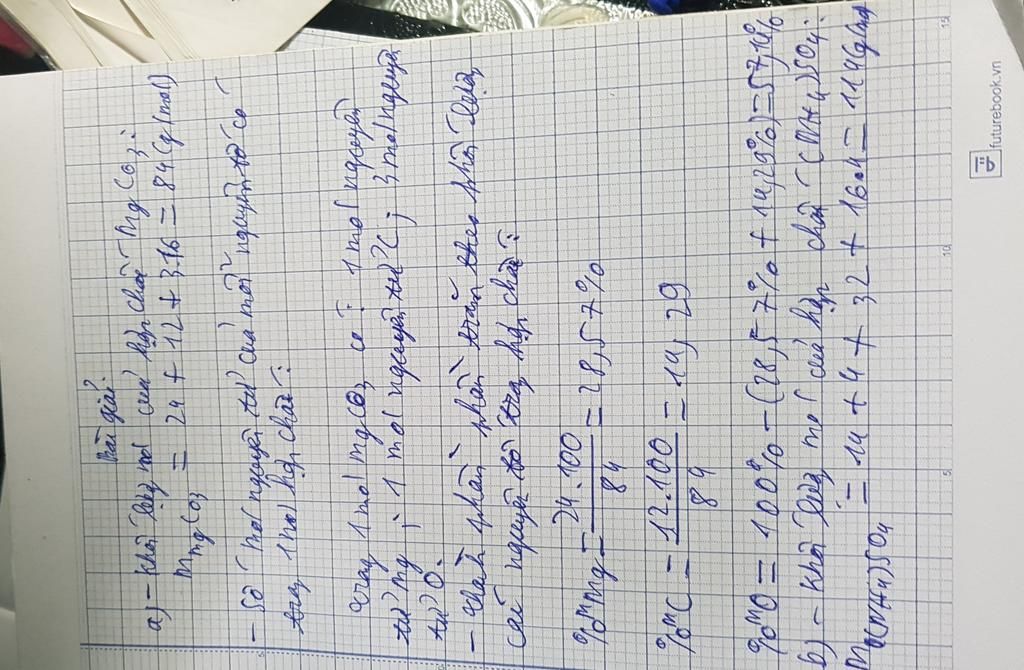 Bài giải:
a) - Khối lượng mol của hợp chất MgCO3:
MMgCO3 = 24 + 12 + 3.16 = 84 (g/mol)
- Số mol nguyên tử của mỗi nguyên tố có
trong 1 mol hợp chất:
Trong 1 mol MgCO3 có: 1 mol nguyên
tử Mg; 1 mol nguyên tử C; 3 mol nguyên
tử O.
- Thành phần phần trăm theo khối lượng
các nguyên tố trong hợp chất:
%mMg = 24.100 / 84 = 28,57%
%mC = 12.100 / 84 = 14,29
%mO = 100% - (28,57% + 14,29%) = 57,14%
b) - Khối lượng mol của hợp chất (NH4)SO4:
M(NH4)SO4 = 14 + 4 + 32 + 16.4 = 114 (g/mol)
futurebook.vn
5 10 15